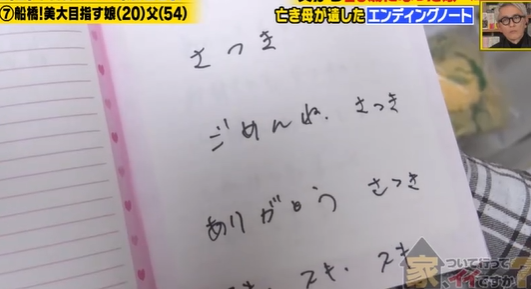 ⑦船橋!美大目指す娘(20)父(54)
亡き母が遺したエンディングノート
さつき
ごめんね、さつき
ありがとう さつき
スキ、スキ
家、ついて行ってイイですか?